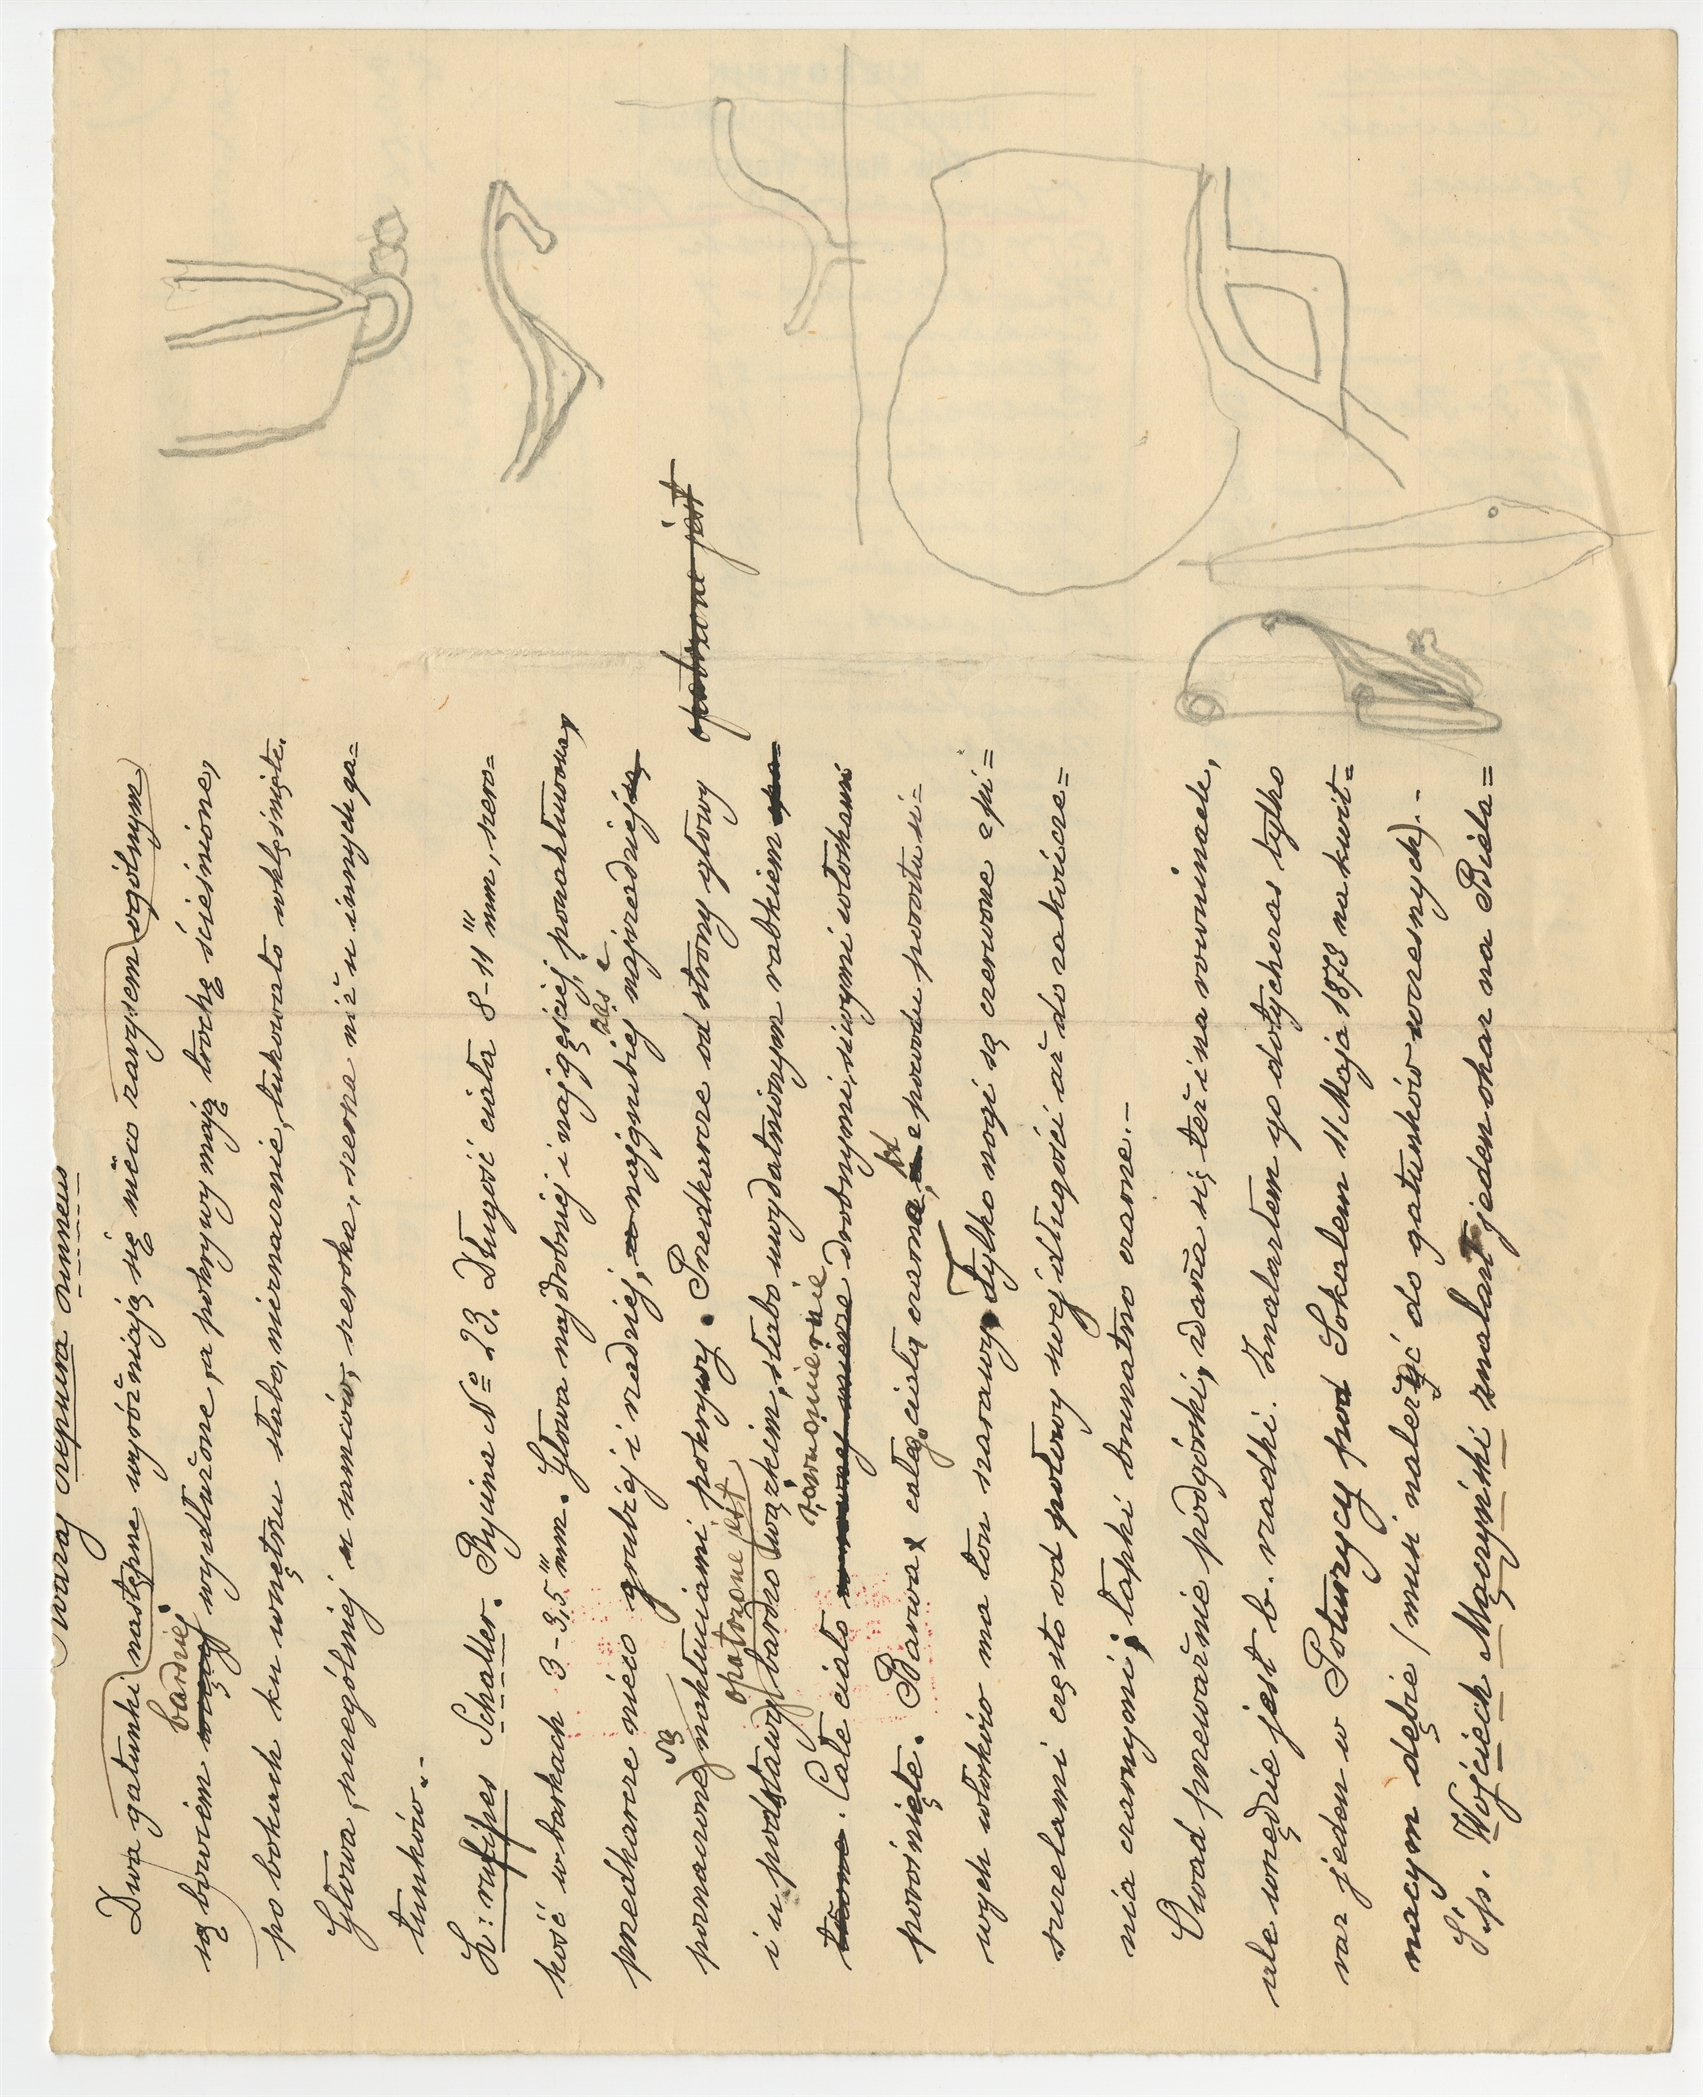 Dwa gatunki następne wyróżniają się nieco zarysem ogólnym
są bowiem bardziej wydłużone, a pokrywy mają trochę ścieśnione,
po bokach ku wnętrzu słabo, nieznacznie, łukowato wklęśnięte.
Głowa, szczególniej u samców, szeroka, szersza niż u innych ga=
tunków.-
L: rufipes Schaller. Rycina № 23. Długość ciała 8-11 mm, szero=
kość w barkach 3-3,5 mm. Głowa najdrobniej i najgęściej ponakłuwana,
przedkarcze nieco grubiej i rzadziej, zaś najgrubiej najrzadziej są
poznaczone są nakłuciami pokrywy. Przedkarcze od strony głowy opatrzone jest
i u podstawy opatrzone jest bardzo wązkiem, słabo uwydatnionym rąbkiem
Całe ciało równomiernie drobnymi, siwymi włoskami
porośnięte. Barwa całego ciała czarna, z powodu porostu si=
wych włosków ma ton szarawy. Tylko nogi są czerwone z pi=
szczelami często od połowy swej długości aż do zakończe=
nia czarnymi, łapki brunatno czarne.-
Owad przeważnie podgórski, zdarza się też i na rowninach,
ale wszędzie jest b. rzadki. Znalazłem go dotychczas tylko
raz jeden w Poturzycy pod Sokalem 11 Maja 1878 na kwit=
nącym dębie (musi należyć do gatunków wczesnych).-
Ś.p. Wojciech Mączyński znalazł jeden okaz na Biela=